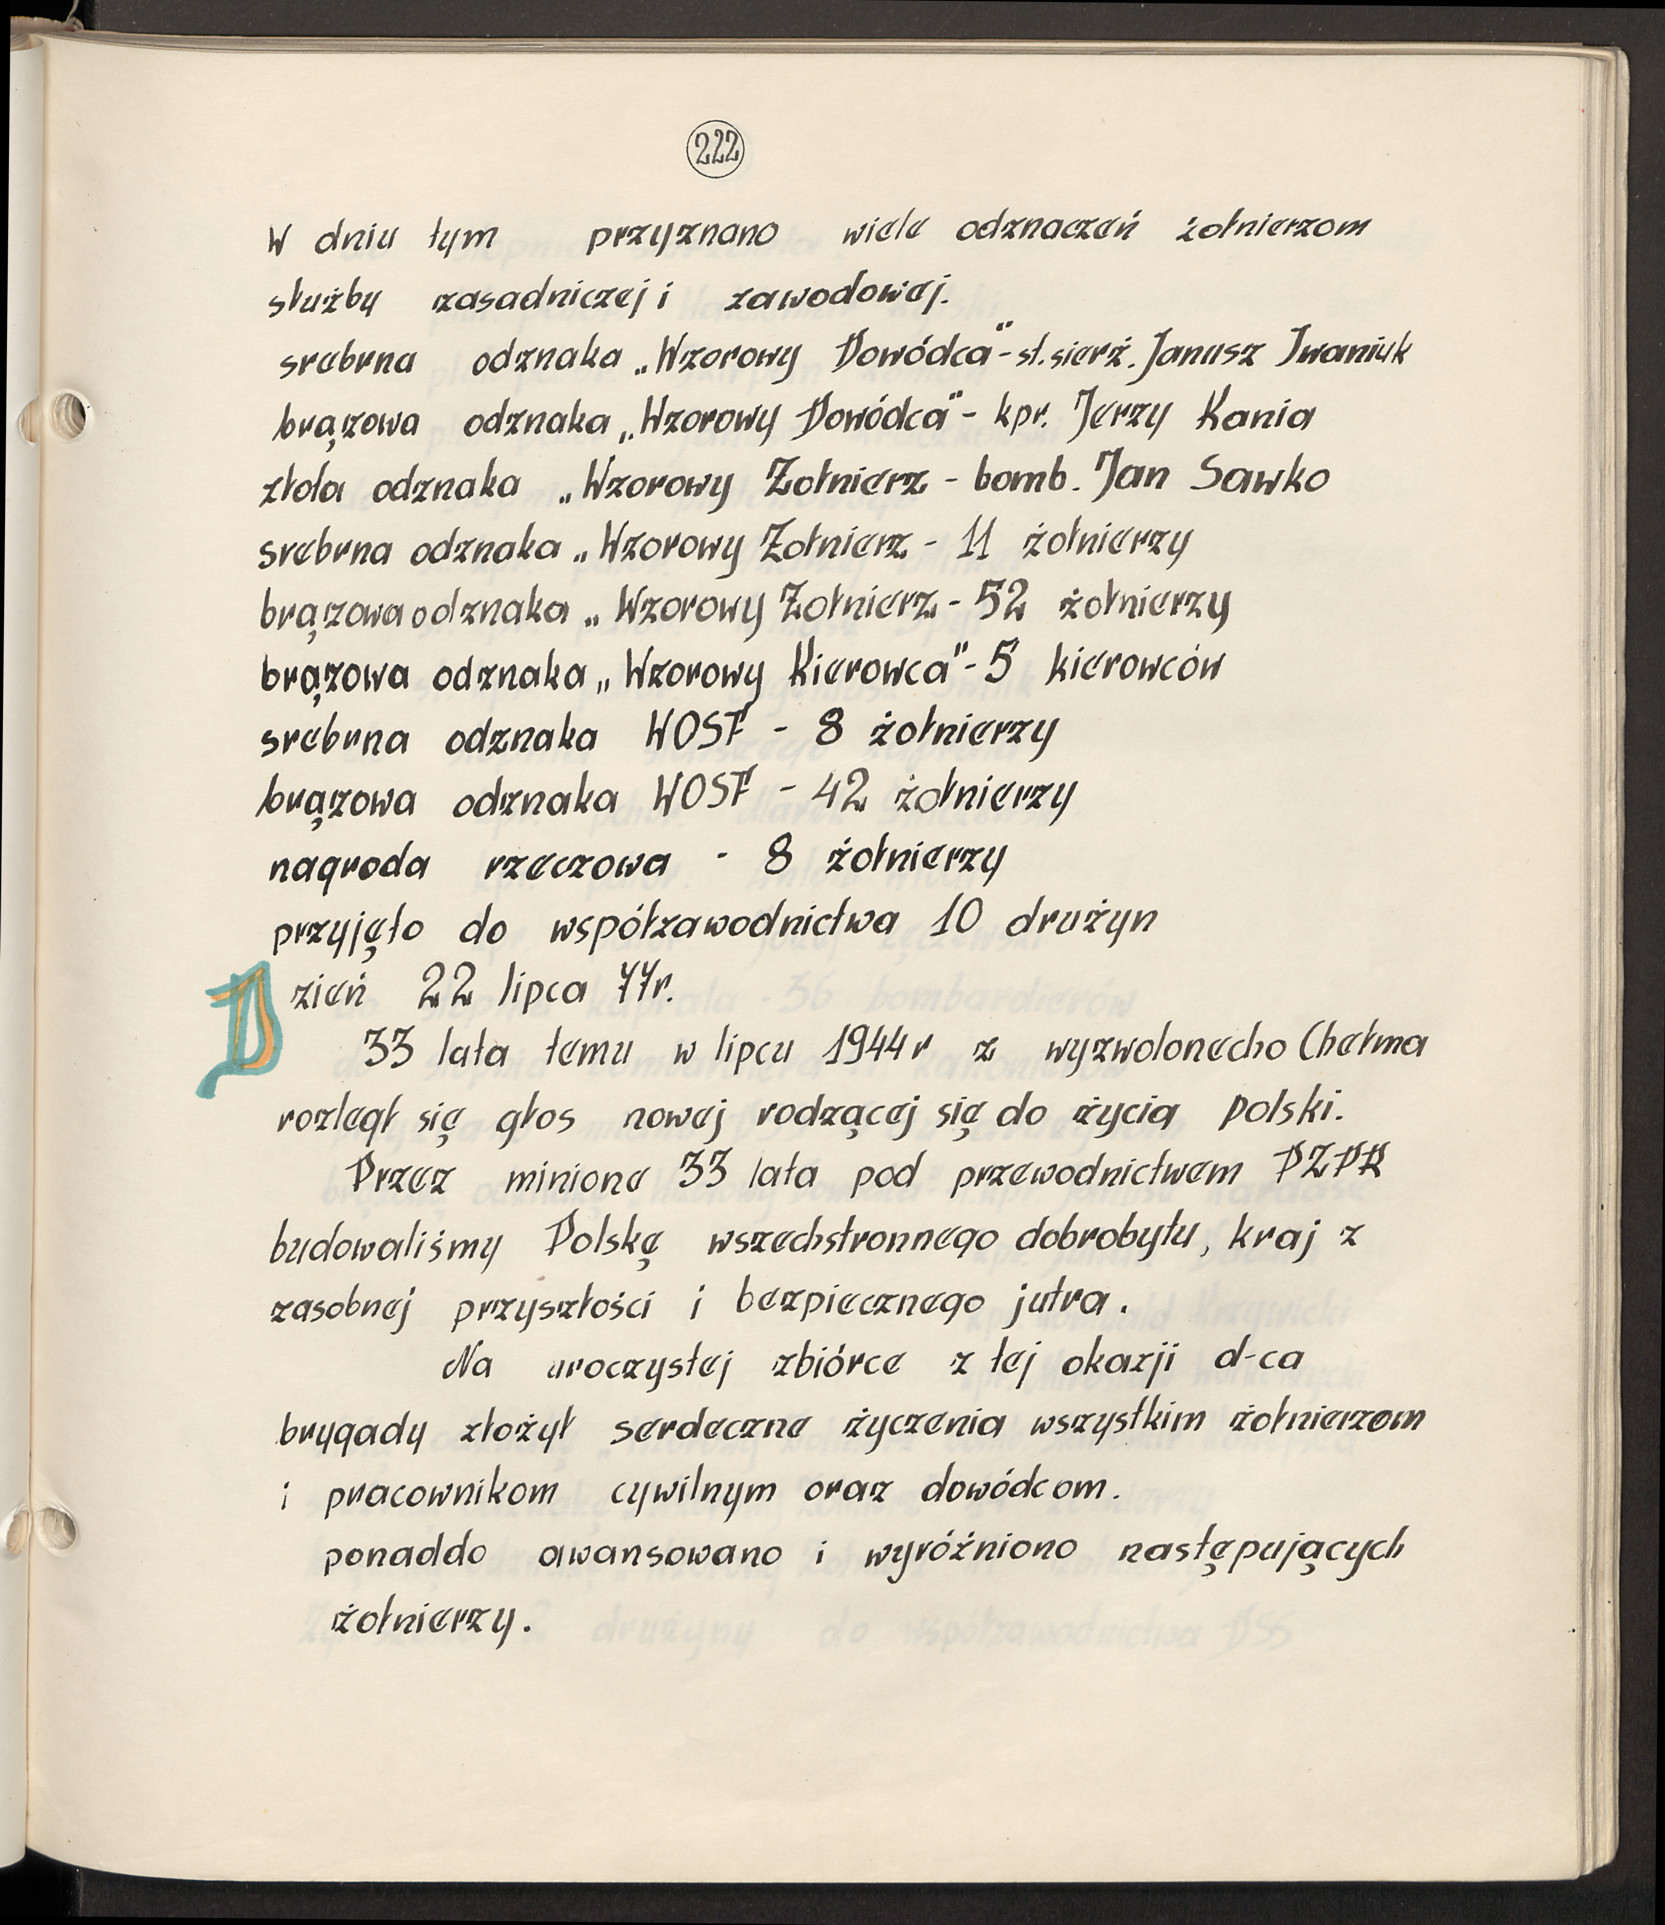 222
W dniu tym przyznano wiele odznaczeń żołnierzom
służby zasadniczej i zawodowej.
srebrna odznaka „Wzorowy Dowódca" - st. sierż. Janusz Iwaniuk
brązowa odznaka „Wzorowy Dowódca" - kpr. Jerzy Kania
złota odznaka „Wzorowy Żołnierz - bomb. Jan Sawko
srebrna odznaka „Wzorowy Żołnierz - 11 żołnierzy
brązowa odznaka „Wzorowy Żołnierz - 52 żołnierzy
brązowa odznaka „Wzorowy Kierowca" - 5 kierowców
srebrna odznaka WOSF - 8 żołnierzy
brązowa odznaka WOSF - 42 żołnierzy
nagroda rzeczowa - 8 żołnierzy
przyjęto do współzawodnictwa 10 drużyn
Dzień 22 lipca 77r.
33 lata temu w lipcu 1944r z wyzwolonecho Chełma
rozległ się głos nowej rodzącej się do życia polski.
Przez minione 33 lata pod przewodnictwem PZPR
budowaliśmy Polskę wszechstronnego dobrobytu, kraj z
zasobnej przyszłości i bezpiecznego jutra.
Na uroczystej zbiórce z tej okazji d-ca
brygady złożył serdeczne życzenia wszystkim żołnierzom
i pracownikom cywilnym oraz dowódcom.
ponaddo awansowano i wyróźniono następujących
żołnierzy.